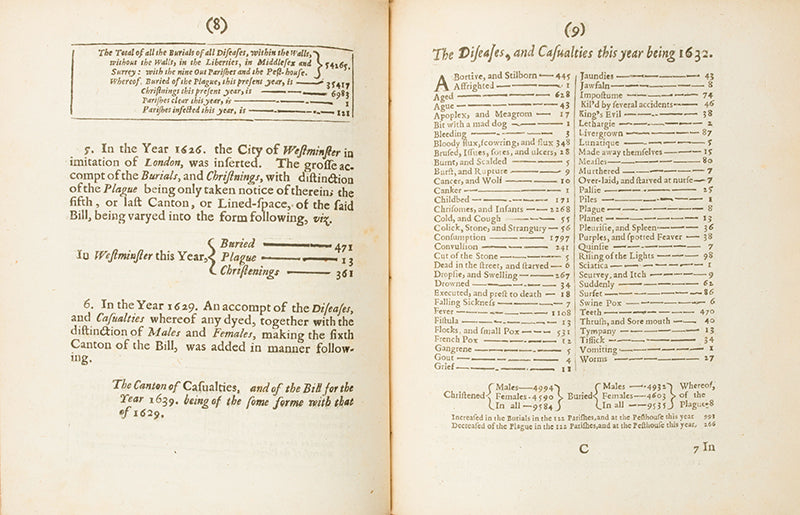 (8)
The Total of all the Burials of all Diſeaſes, within the Walls,
without the Walls, in the Liberties, in Middleſex and
Surrey: with the nine Out Pariſhes and the Peſt-houſe.
54265.
Whereof, Buried of the Plague, this preſent year, is 35417
Chriſtnings this preſent year, is 6983
Pariſhes clear this year, is 1
Pariſhes infected this year, is 121
5. In the Year 1626. the City of Weſtminſter in
imitation of London, was inſerted. The groſſe ac-
compt of the Burials, and Chriſtnings, with diſtinction
of the Plague being only taken notice of therein; the
fifth, or laſt Canton, or Lined-ſpace, of the ſaid
Bill, being varyed into the form following, viz.
Buried 471
In Weſtminſter this Year, Plague 13
Chriſtenings 361
6. In the Year 1629. An accompt of the Diſeaſes,
and Caſualties whereof any dyed, together with the
diſtinction of Males and Females, making the ſixth
Canton of the Bill, was added in manner follow-
ing.
The Canton of Caſualties, and of the Bill for the
Year 1639. being of the ſome forme with that
of 1629.
(9)
The Diſeaſes, and Caſualties this year being 1632.
Abortive, and Stilborn 445
Affrighted 1
Aged 628
Ague 43
Apoplex, and Meagrom 17
Bit with a mad dog 1
Bleeding 3
Bloody flux, ſcowring, and flux 348
Bruſed, Iſſues, ſores, and ulcers, 28
Burnt, and Scalded 5
Burſt, and Rupture 9
Cancer, and Wolf 10
Canker 1
Childbed 171
Chriſomes, and Infants 2268
Cold, and Cough 55
Colick, Stone, and Strangury 56
Conſumption 1797
Convulſion 241
Cut of the Stone 5
Dead in the ſtreet, and ſtarved 6
Dropſie, and Swelling 267
Drowned 34
Executed, and preſt to death 18
Falling Sickneſs 7
Fever 1108
Fiſtula 13
Flocks, and ſmall Pox 531
French Pox 12
Gangrene 5
Gout 4
Grief 11
Jaundies 43
Jawfaln 8
Impoſtume 74
Kil'd by ſeveral accidents 46
King's Evil 38
Lethargie 2
Livergrown 87
Lunatique 5
Made away themſelves 15
Meaſles 80
Murthered 7
Over-laid, and ſtarved at nurſe 7
Palſie 25
Piles 1
Plague 8
Planet 13
Pleuriſie, and Spleen 36
Purples, and ſpotted Feaver 38
Quinſie 7
Riſing of the Lights 98
Sciatica 1
Scurvey, and Itch 9
Suddenly 62
Surfet 86
Swine Pox 6
Teeth 470
Thruſh, and Sore mouth 40
Tympany 13
Tiſſick 34
Vomiting 1
Worms 27
Males 4994 Males 4932 Whereof,
Chriſtened Females 4590 Buried Females 4603 of the
In all 9584 In all 9535 Plague-8
Increaſed in the Burials in the 122 Pariſhes, and at the Peſthouſe this year 993
Decreaſed of the Plague in the 122 Pariſhes, and at the Peſthouſe this year, 266
C
7 In